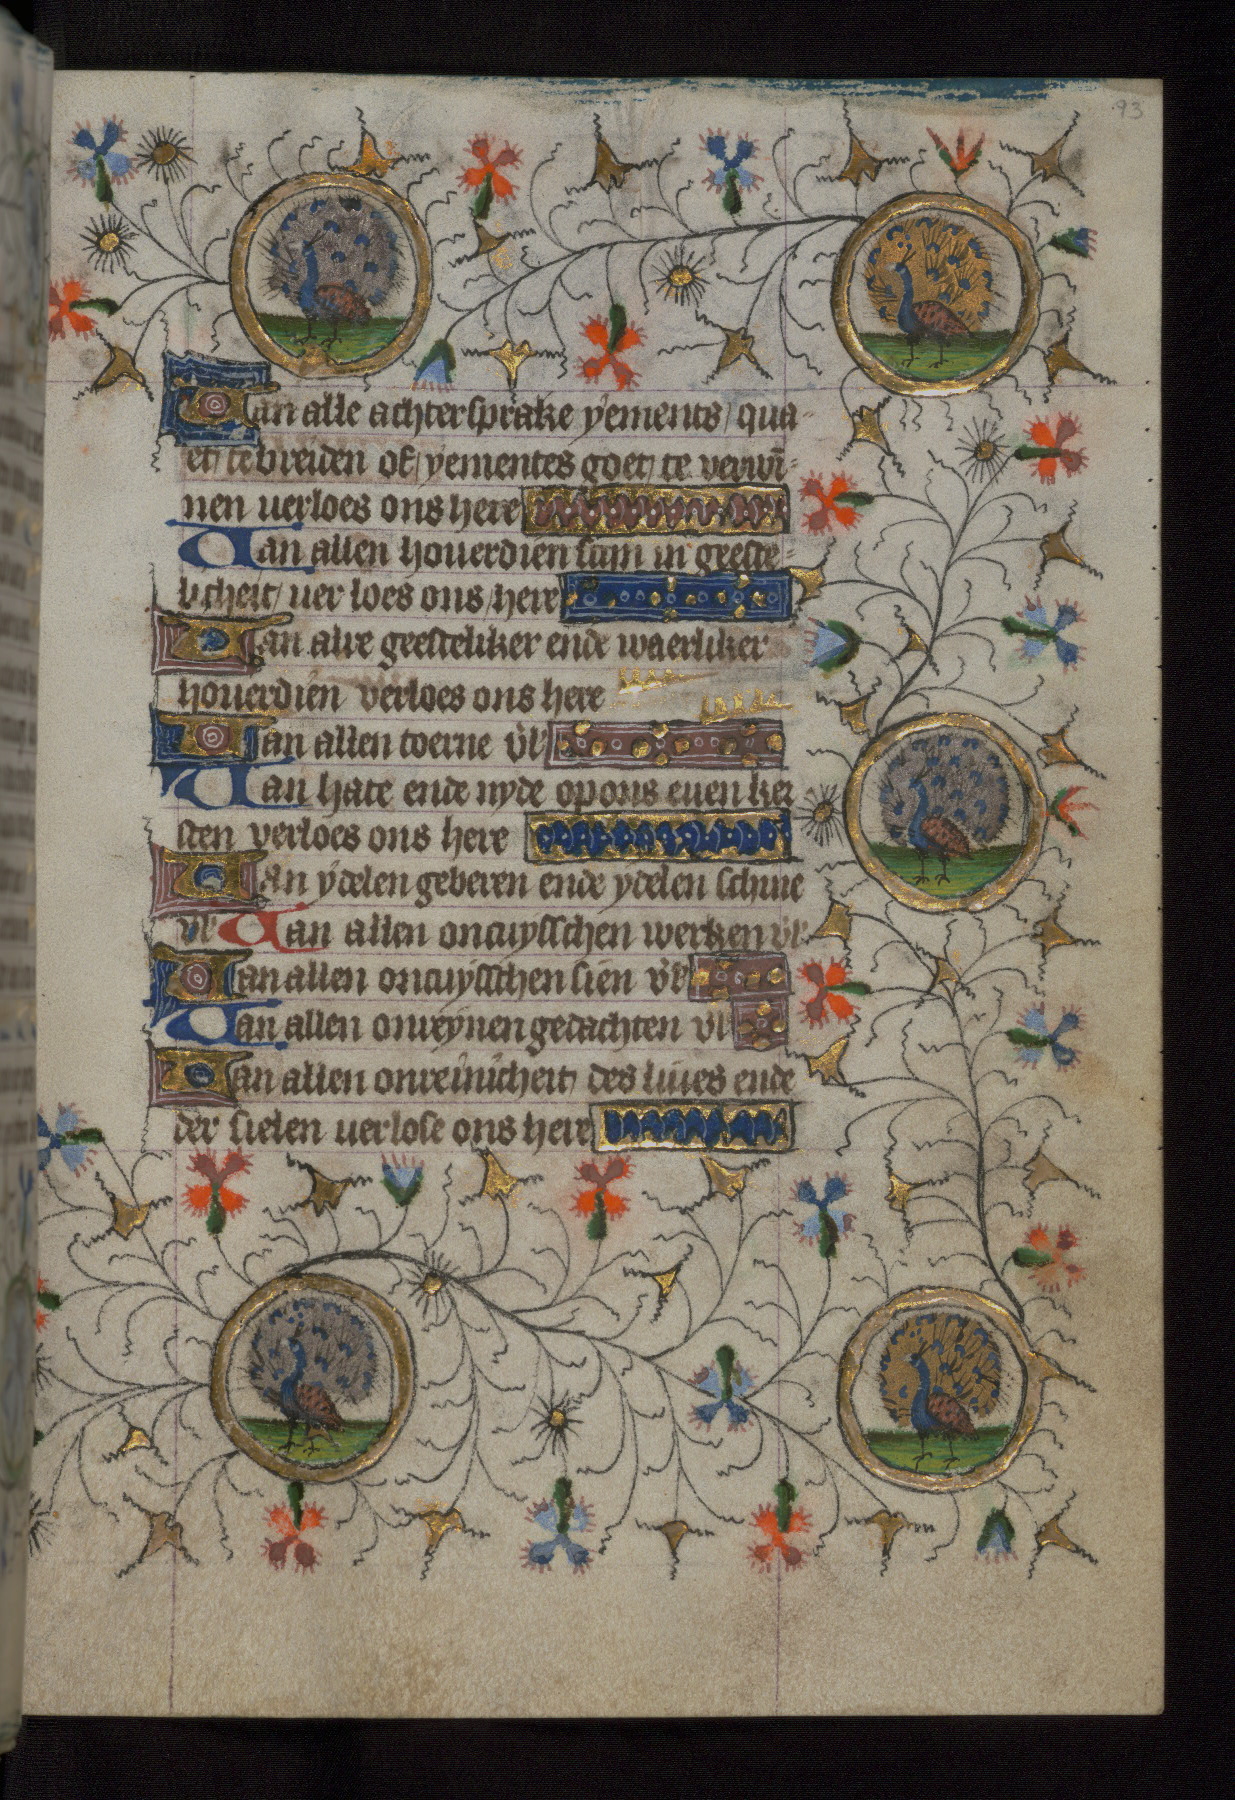 93
Van alle achtersprake yements / qua-
et / te breiden of / yementes goet / te verwī-
nen verloes ons here
Van allen houerdien sijn in geeste-
licheit / uer loes ons / here
Van alre geesteliker ende waerliker
houerdien verloes ons here
Van allen toerne v̄l
Van hate ende nyde op ons euen ker
sten verloes ons here
Van ydelen geberen ende ydelen schine
v̄l Van allen oncuysschen werken v̄l
Van allen oncuysschen sien v̄l
Van allen onreynen gedachten vl
Van allen onreinicheit / des liues ende
der sielen uerlose ons here